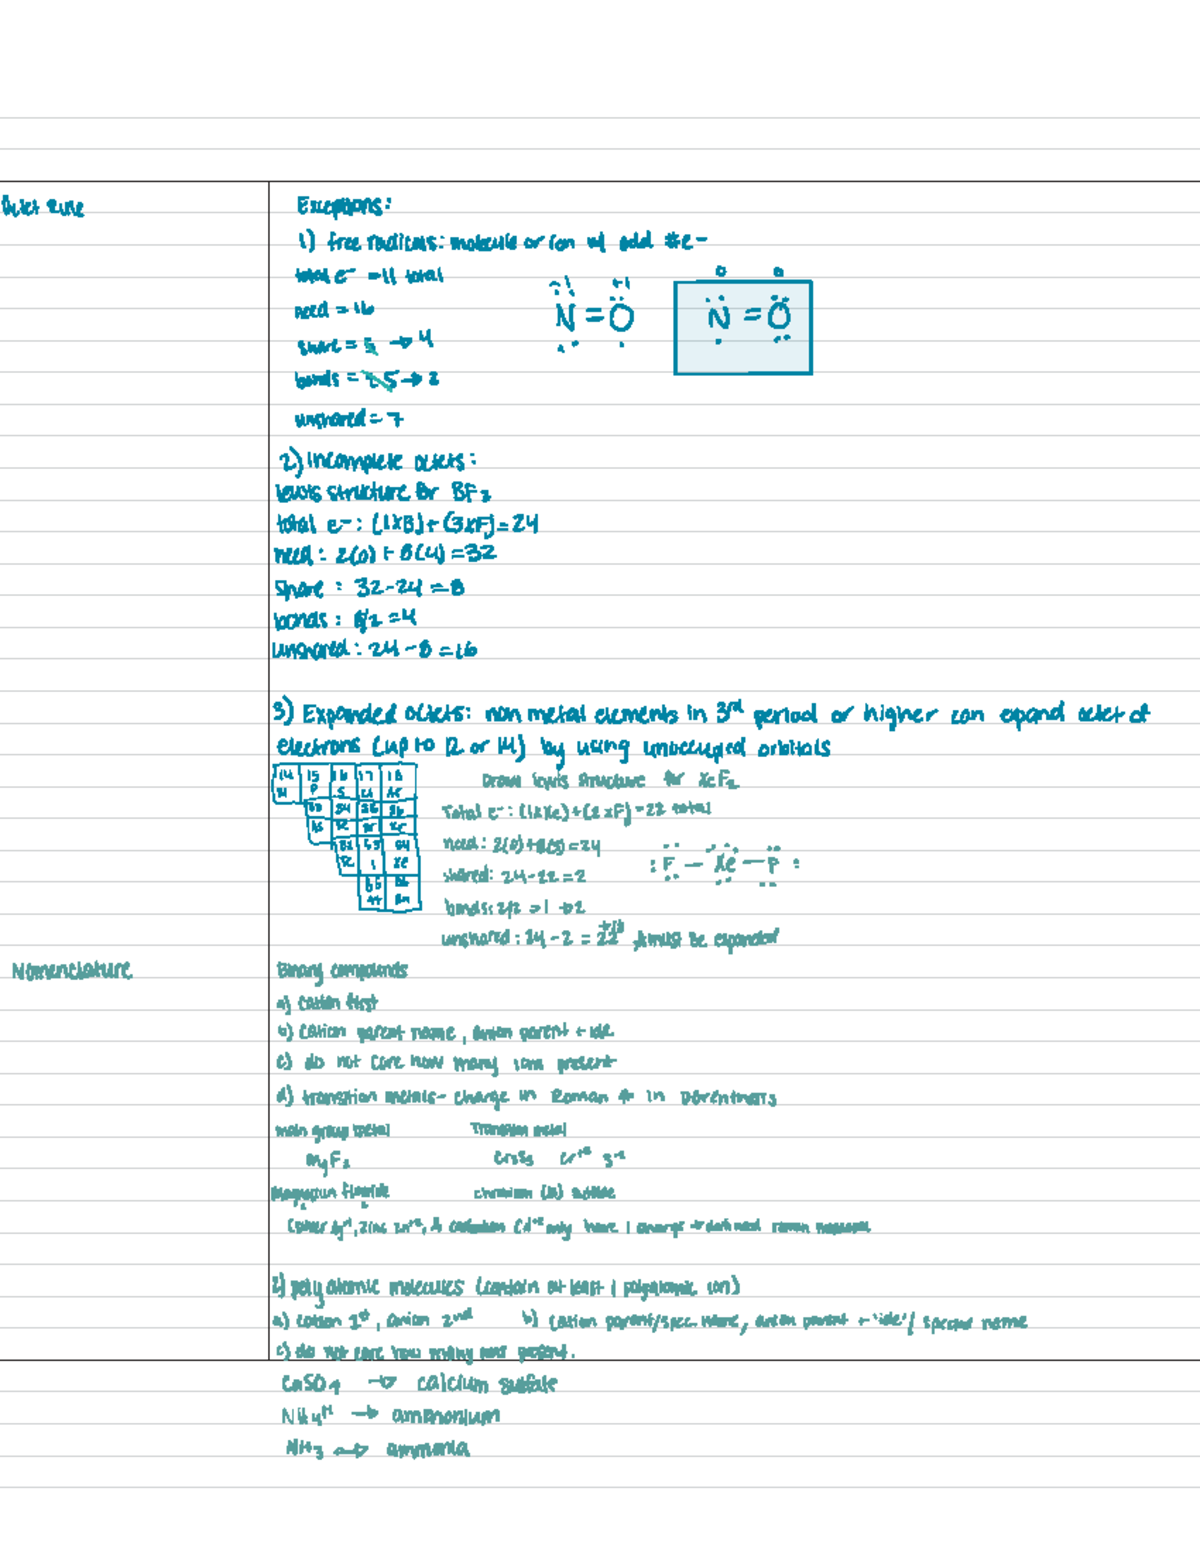 Octet Rule
Exceptions:
1) free radicals: molecule or ion w/ odd #e-
total e⁻ = 11 total
need = 16
share = 5 → 4
bonds = 2.5 → 2
unshared = 7
-1 +1
N = O
0 0
N = O
2) Incomplete octets:
lewis structure for BF₃
total e⁻: (1xB) + (3xF) = 24
need: 2(0) + 8(4) = 32
share: 32-24 = 8
bonds: 8/2 = 4
unshared: 24-8 = 16
3) Expanded octets: non metal elements in 3rd period or higher can expand octet of
electrons (up to 12 or 14) by using unoccupied orbitals
14 15 16 17 18
P S Ar
33 34 35 36
As Kr
53 54
I Xe
85 86
At Rn
Draw lewis structure for XeF₂
Total e⁻: (1xXe) + (2xF) = 22 total
need: 2(0) + 8(3) = 24
shared: 24-22 = 2
bonds: 2/2 = 1 → 2
unshared: 24 - 2 = 22 must be expanded
:F — Xe — F:
Nomenclature
Binary compounds
a) cation first
b) cation parent name, anion parent + ide
c) do not care how many ions present
d) transition metals- charge in Roman # in parentheses
main group metal Transition metal
MgF₂ Cr₂S₃ Cr⁺³ S⁻²
Magnesium fluoride chromium (III) sulfide
Ag⁺¹, zinc Zn⁺², & cadmium Cd⁺² only have 1 charge → don't need roman numerals
2) polyatomic molecules (contain at least 1 polyatomic ion)
a) cation 1st, anion 2nd b) cation parent/spec. name, anion parent + "ide"/ special name
c) do not care how many are present.
CaSO₄ → calcium sulfate
NH₄⁺¹ → ammonium
NH₃ → ammonia